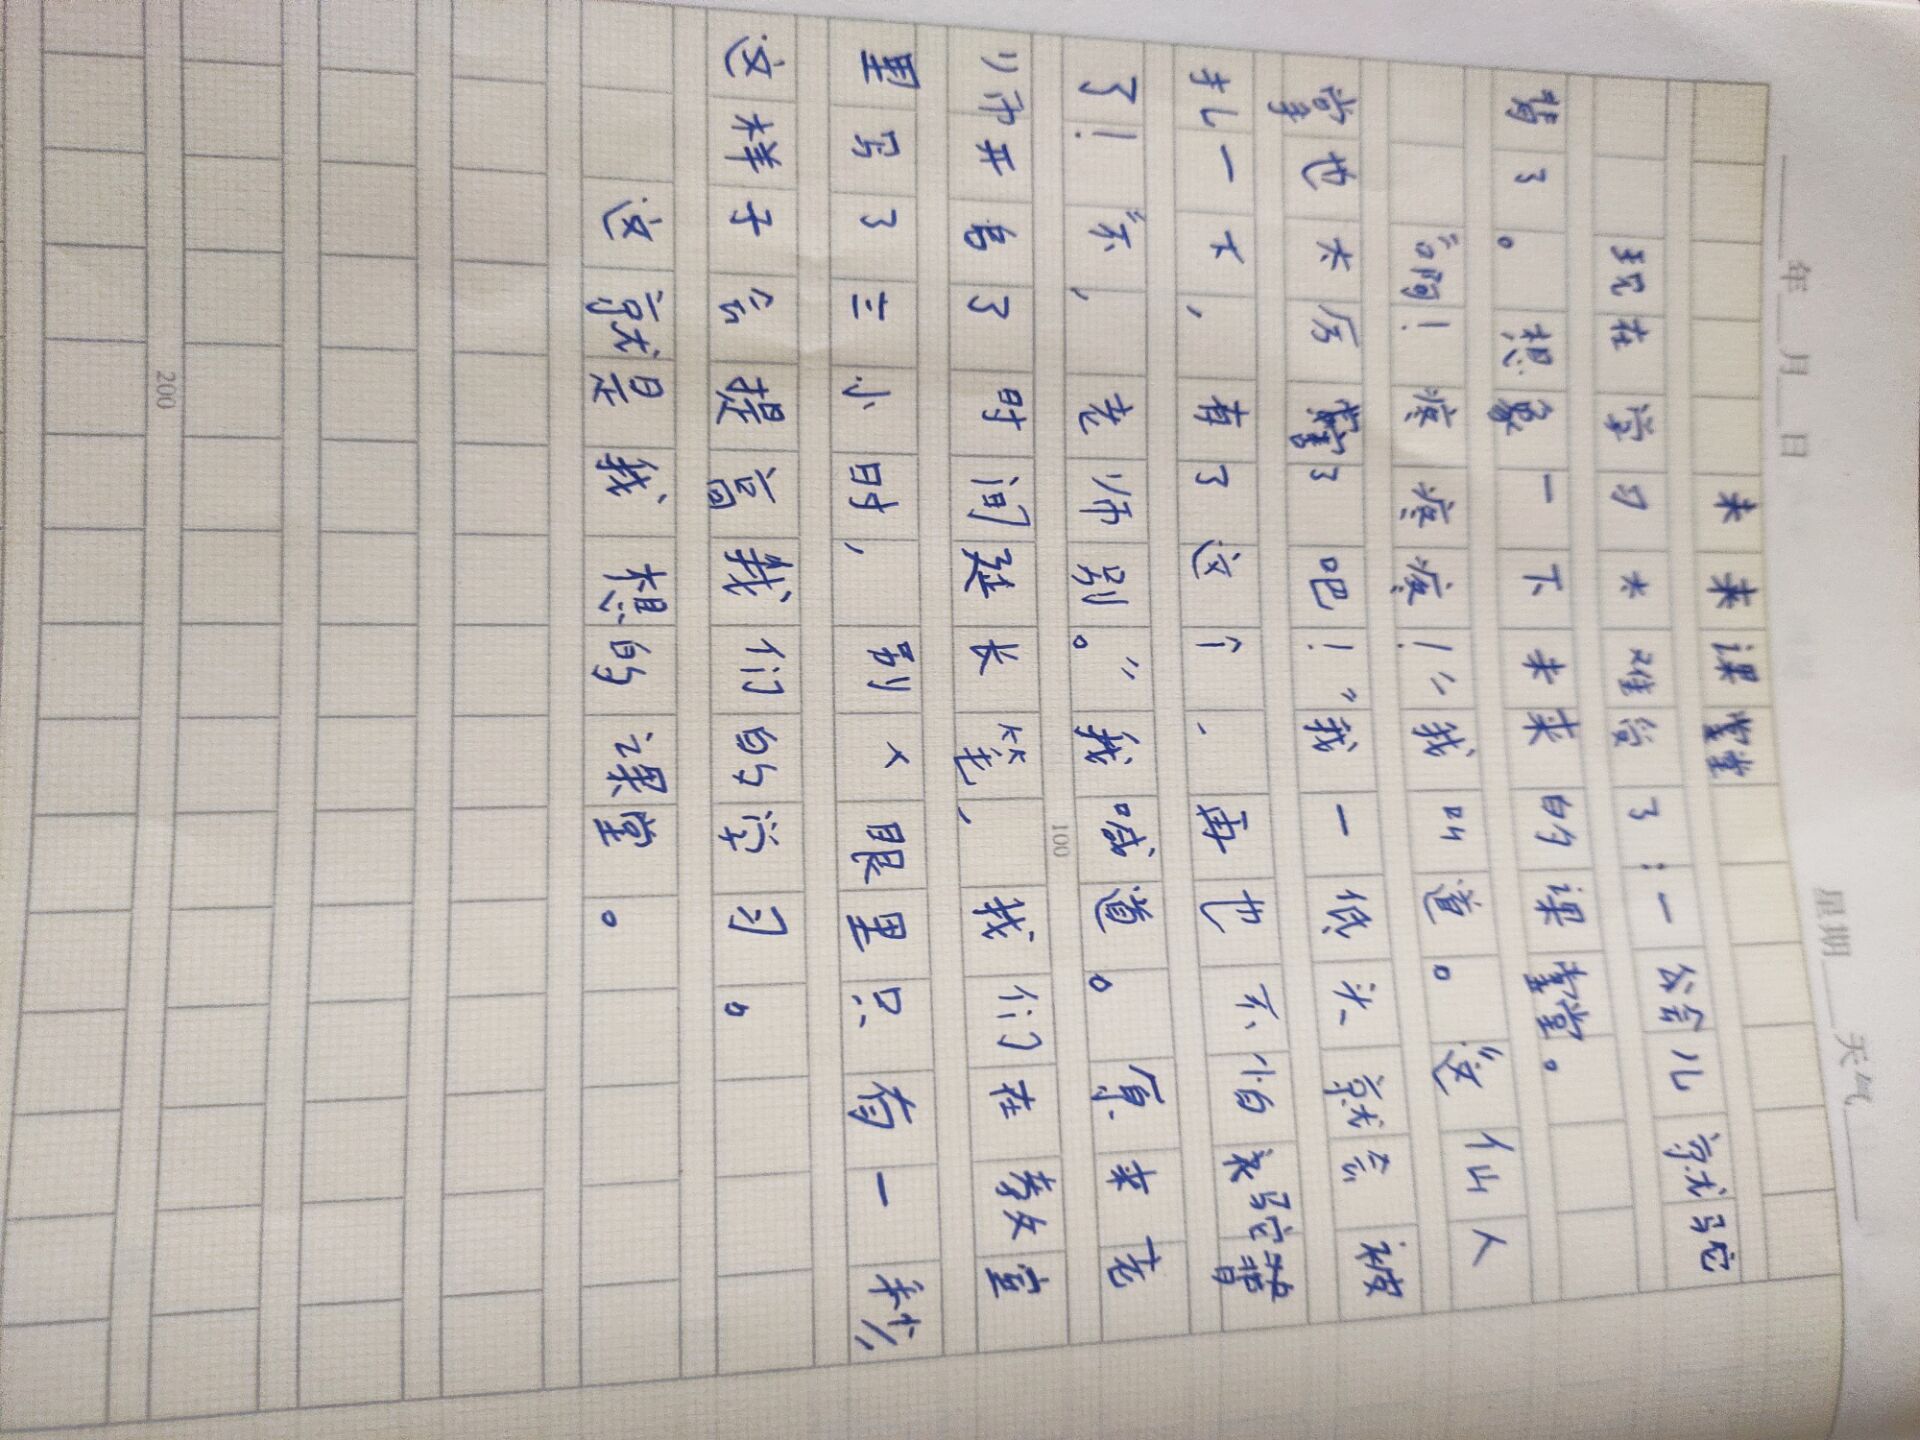 年 月 日 星期 天气
未来课堂
现在学习太难受了：一会儿就驼
背了。想象一下未来的课堂。
“啊！疼疼疼！”我叫道。“这仙人
掌也太厉害了吧！”我一低头就会被
扎一下，有了这个，再也不怕我驼背
了！“不，老师别。”我喊道。原来老
100
师开启了时间延长笔，我们在教室
里写了三小时，别人眼里只有一秒
这样子会提高我们的学习。
这就是我想的课堂。
200